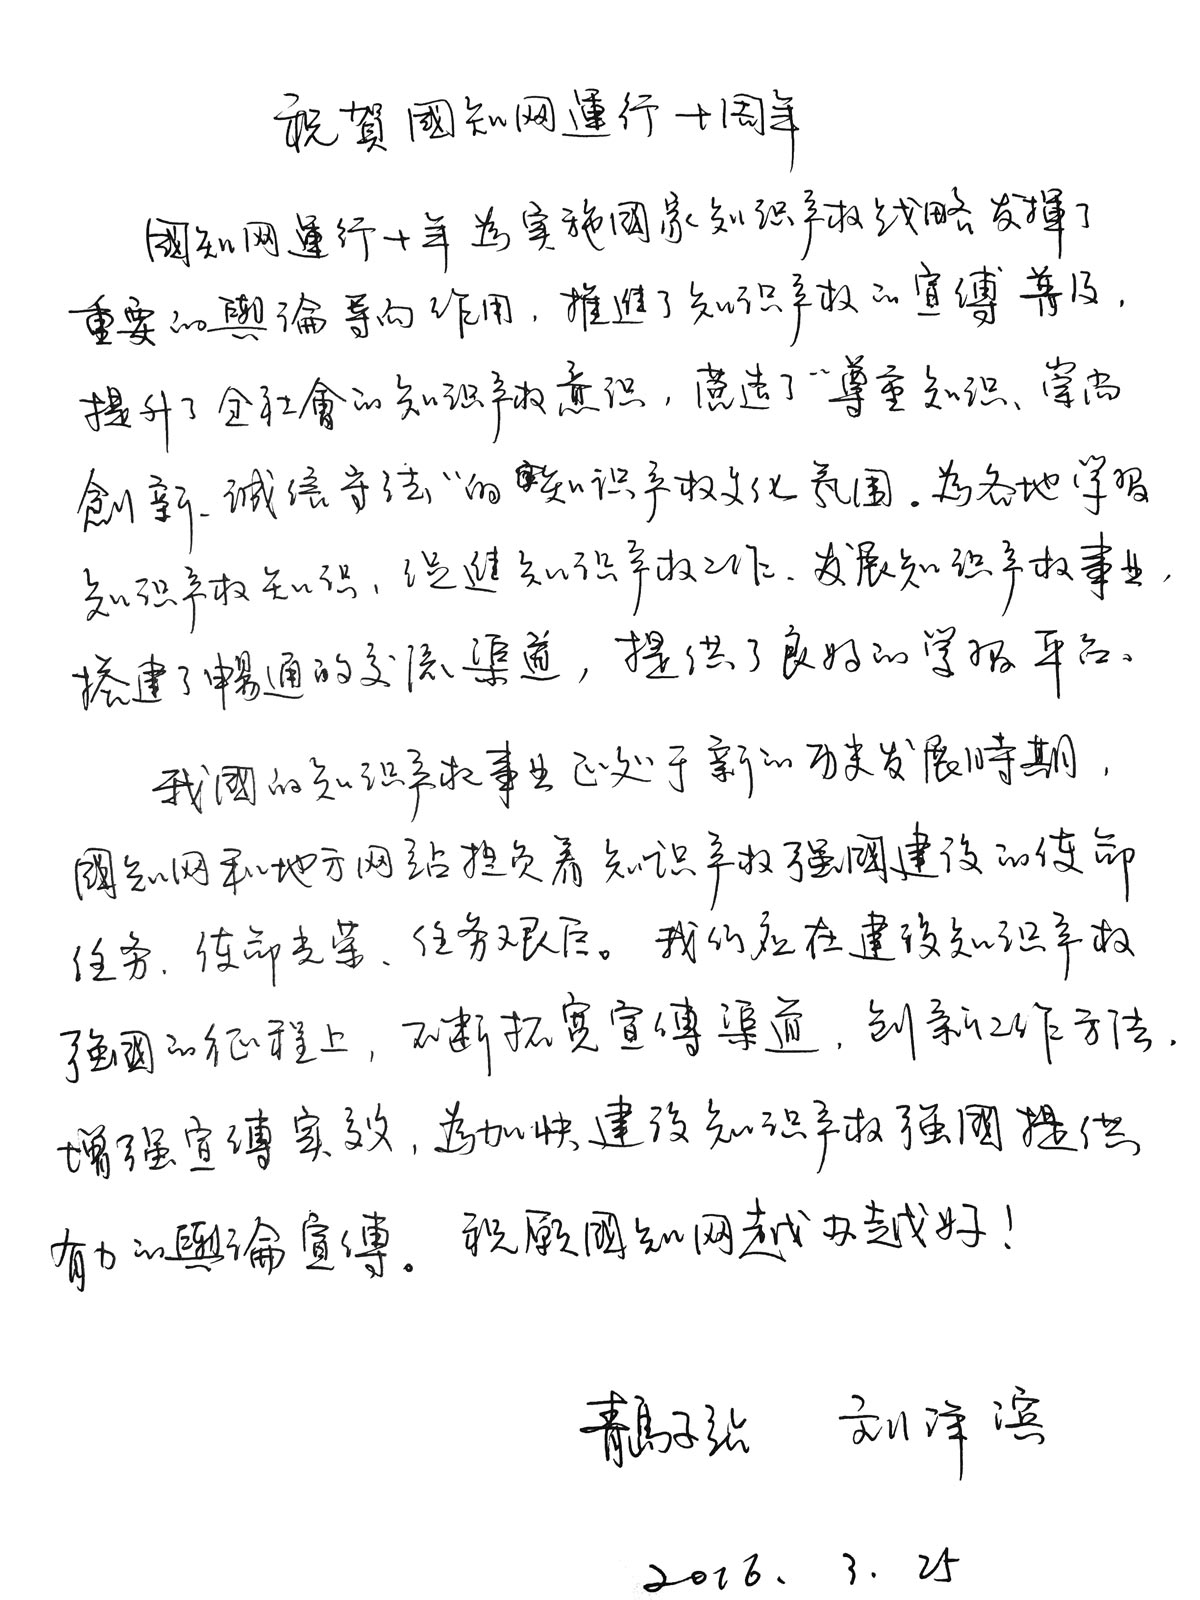 祝賀國知网運行十周年
國知网運行十年為实施國家知识产权战略发揮了
重要的輿論导向作用，推進了知识产权的宣傳普及，
提升了全社會的知识产权意识，营造了“尊重知识、崇尚
創新、诚信守法”的知识产权文化氛围。為各地学習
知识产权知识，促進知识产权工作、发展知识产权事业，
搭建了暢通的交流渠道，提供了良好的学習平台。
我國的知识产权事业正处于新的历史发展時期，
國知网和地方网站担负着知识产权强國建设的使命
任务、使命光荣、任务艰巨。我们应在建设知识产权
强國的征程上，不断拓宽宣傳渠道，创新工作方法，
增强宣傳实效，為加快建设知识产权强國提供
有力的輿論宣傳。祝愿國知网越办越好！
青島子站 刘洋滨
2016. 3. 25